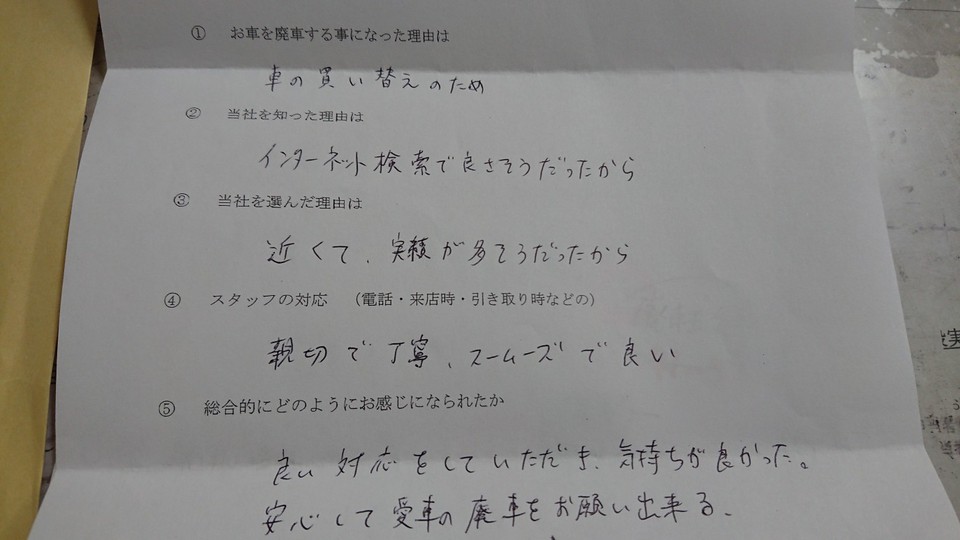 ① お車を廃車する事になった理由は
車の買い替えのため
② 当社を知った理由は
インターネット検索で良さそうだったから
③ 当社を選んだ理由は
近くて、実績が多そうだったから
④ スタッフの対応 (電話・来店時・引き取り時などの)
親切で丁寧、スムーズで良い
⑤ 総合的にどのようにお感じになられたか
良い対応をしていただき、気持ちが良かった。
安心して愛車の廃車をお願い出来る、